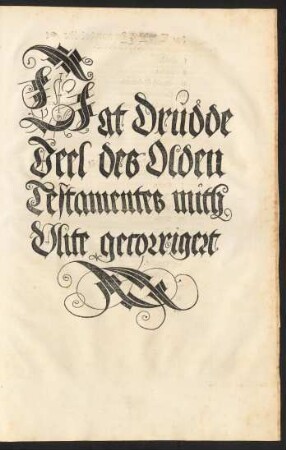 Dat Drudde
Deel des Olden
Testamentes mith
Vlite gecorrigert